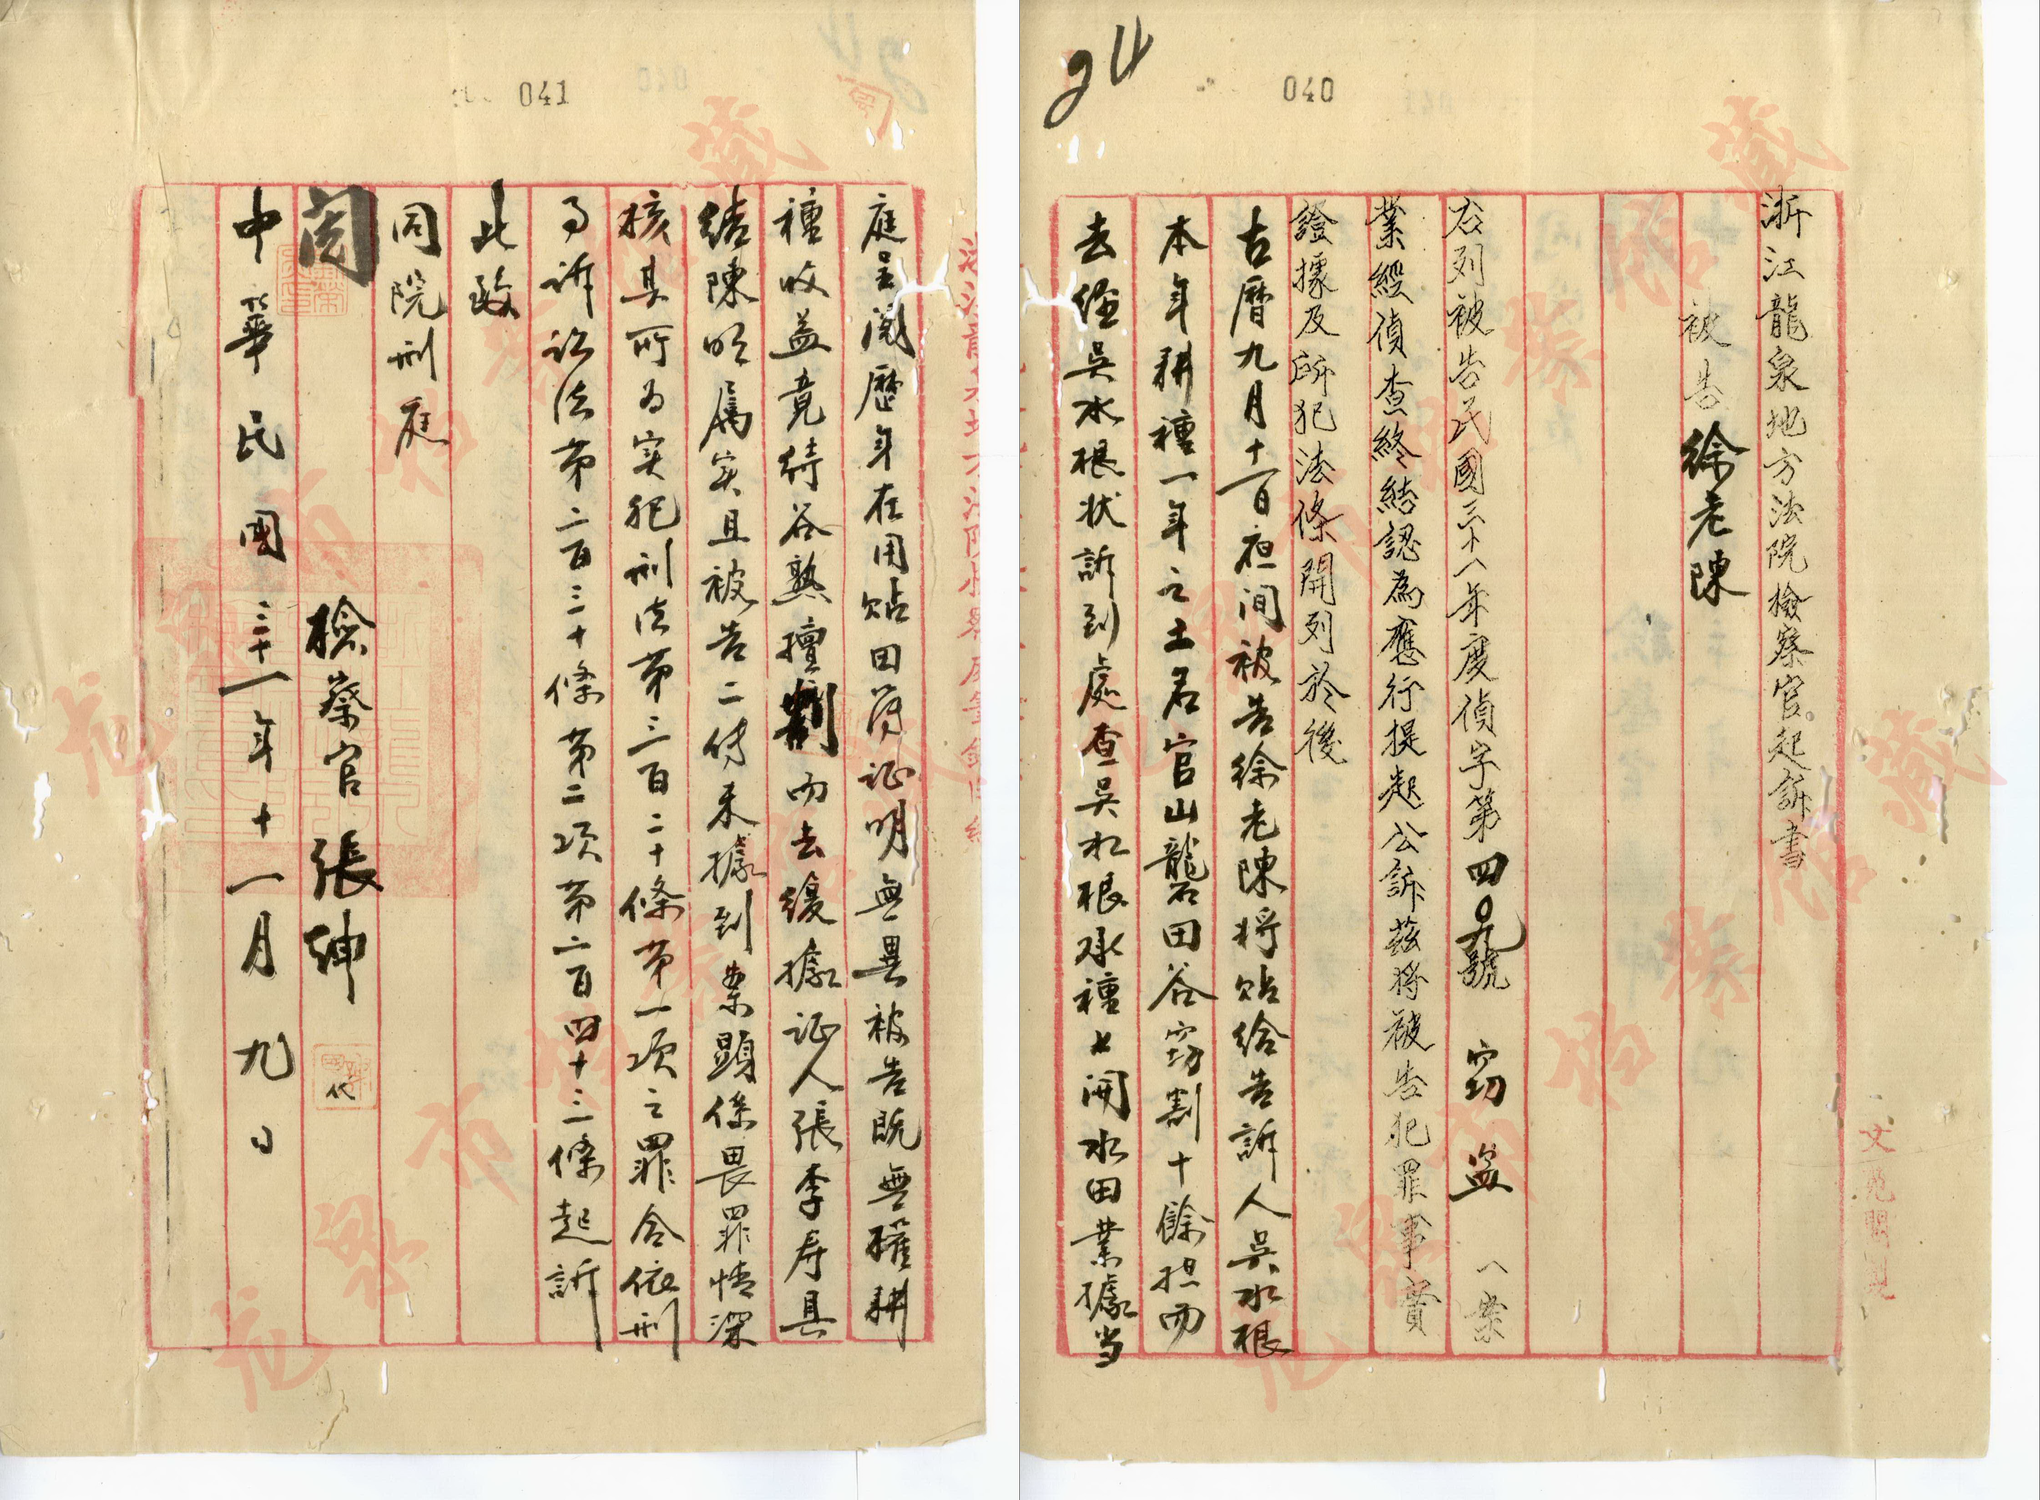 040
浙江龍泉地方法院檢察官起訴書
被告 徐老陳
右列被告民國三十八年度偵字第四〇九號 竊 盜 一案
業經偵查終結認為應行提起公訴茲將被告犯罪事實
證據及所犯法條開列於後
古曆九月十一日夜间被告徐老陳将贴给告訴人吳水根
本年耕種一年之土名官山龍石田谷窃割十餘担而
去經吳水根状訴到處查吳水根承種上開水田業據当
041
庭呈阅歷年在用贴田簿证明無異被告既無權耕
種收益竟待谷熟擅割而去後據证人張李寿具
结陳明属实且被告二传未據到案顕係畏罪情深
核其所为实犯刑法第三百二十條第一項之罪合依刑
事訴讼法第二百三十條第二項第二百四十三條起訴
此致
同院刑庭
閱
檢察官 張紳
代
中華民國三十一年十一月九日